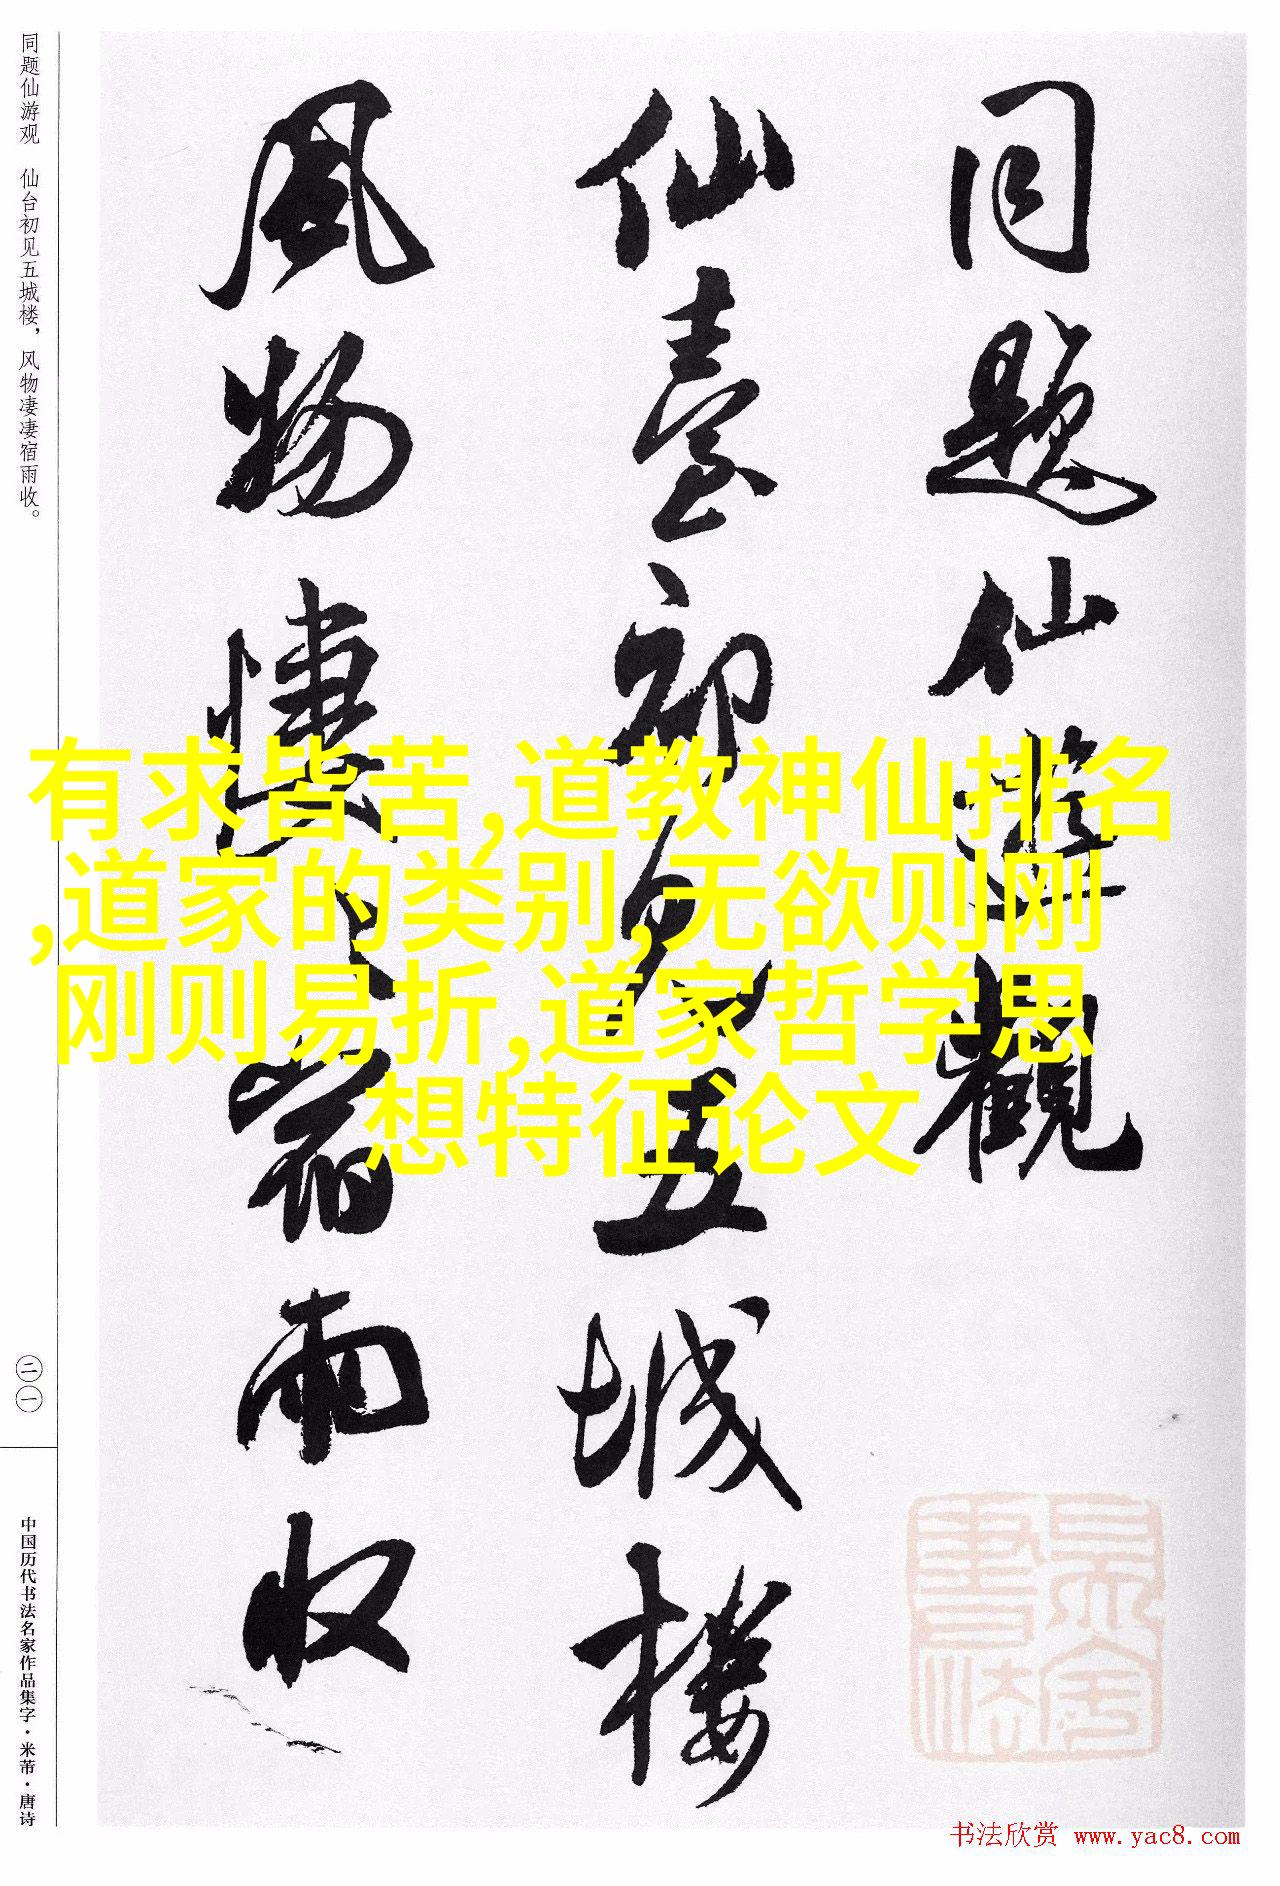 同题仙游观 仙台初见五城楼，风物凄凄宿雨收。
二一
中国历代书法名家作品集字·米芾·唐诗
同题仙游觀
仙臺初见五城樓
風物悽〻宿雨收
有求皆苦,道教神仙排名
,道家的类别,无欲则刚
刚则易折,道家哲学思
想特征论文
书法欣赏 www.yac8.com